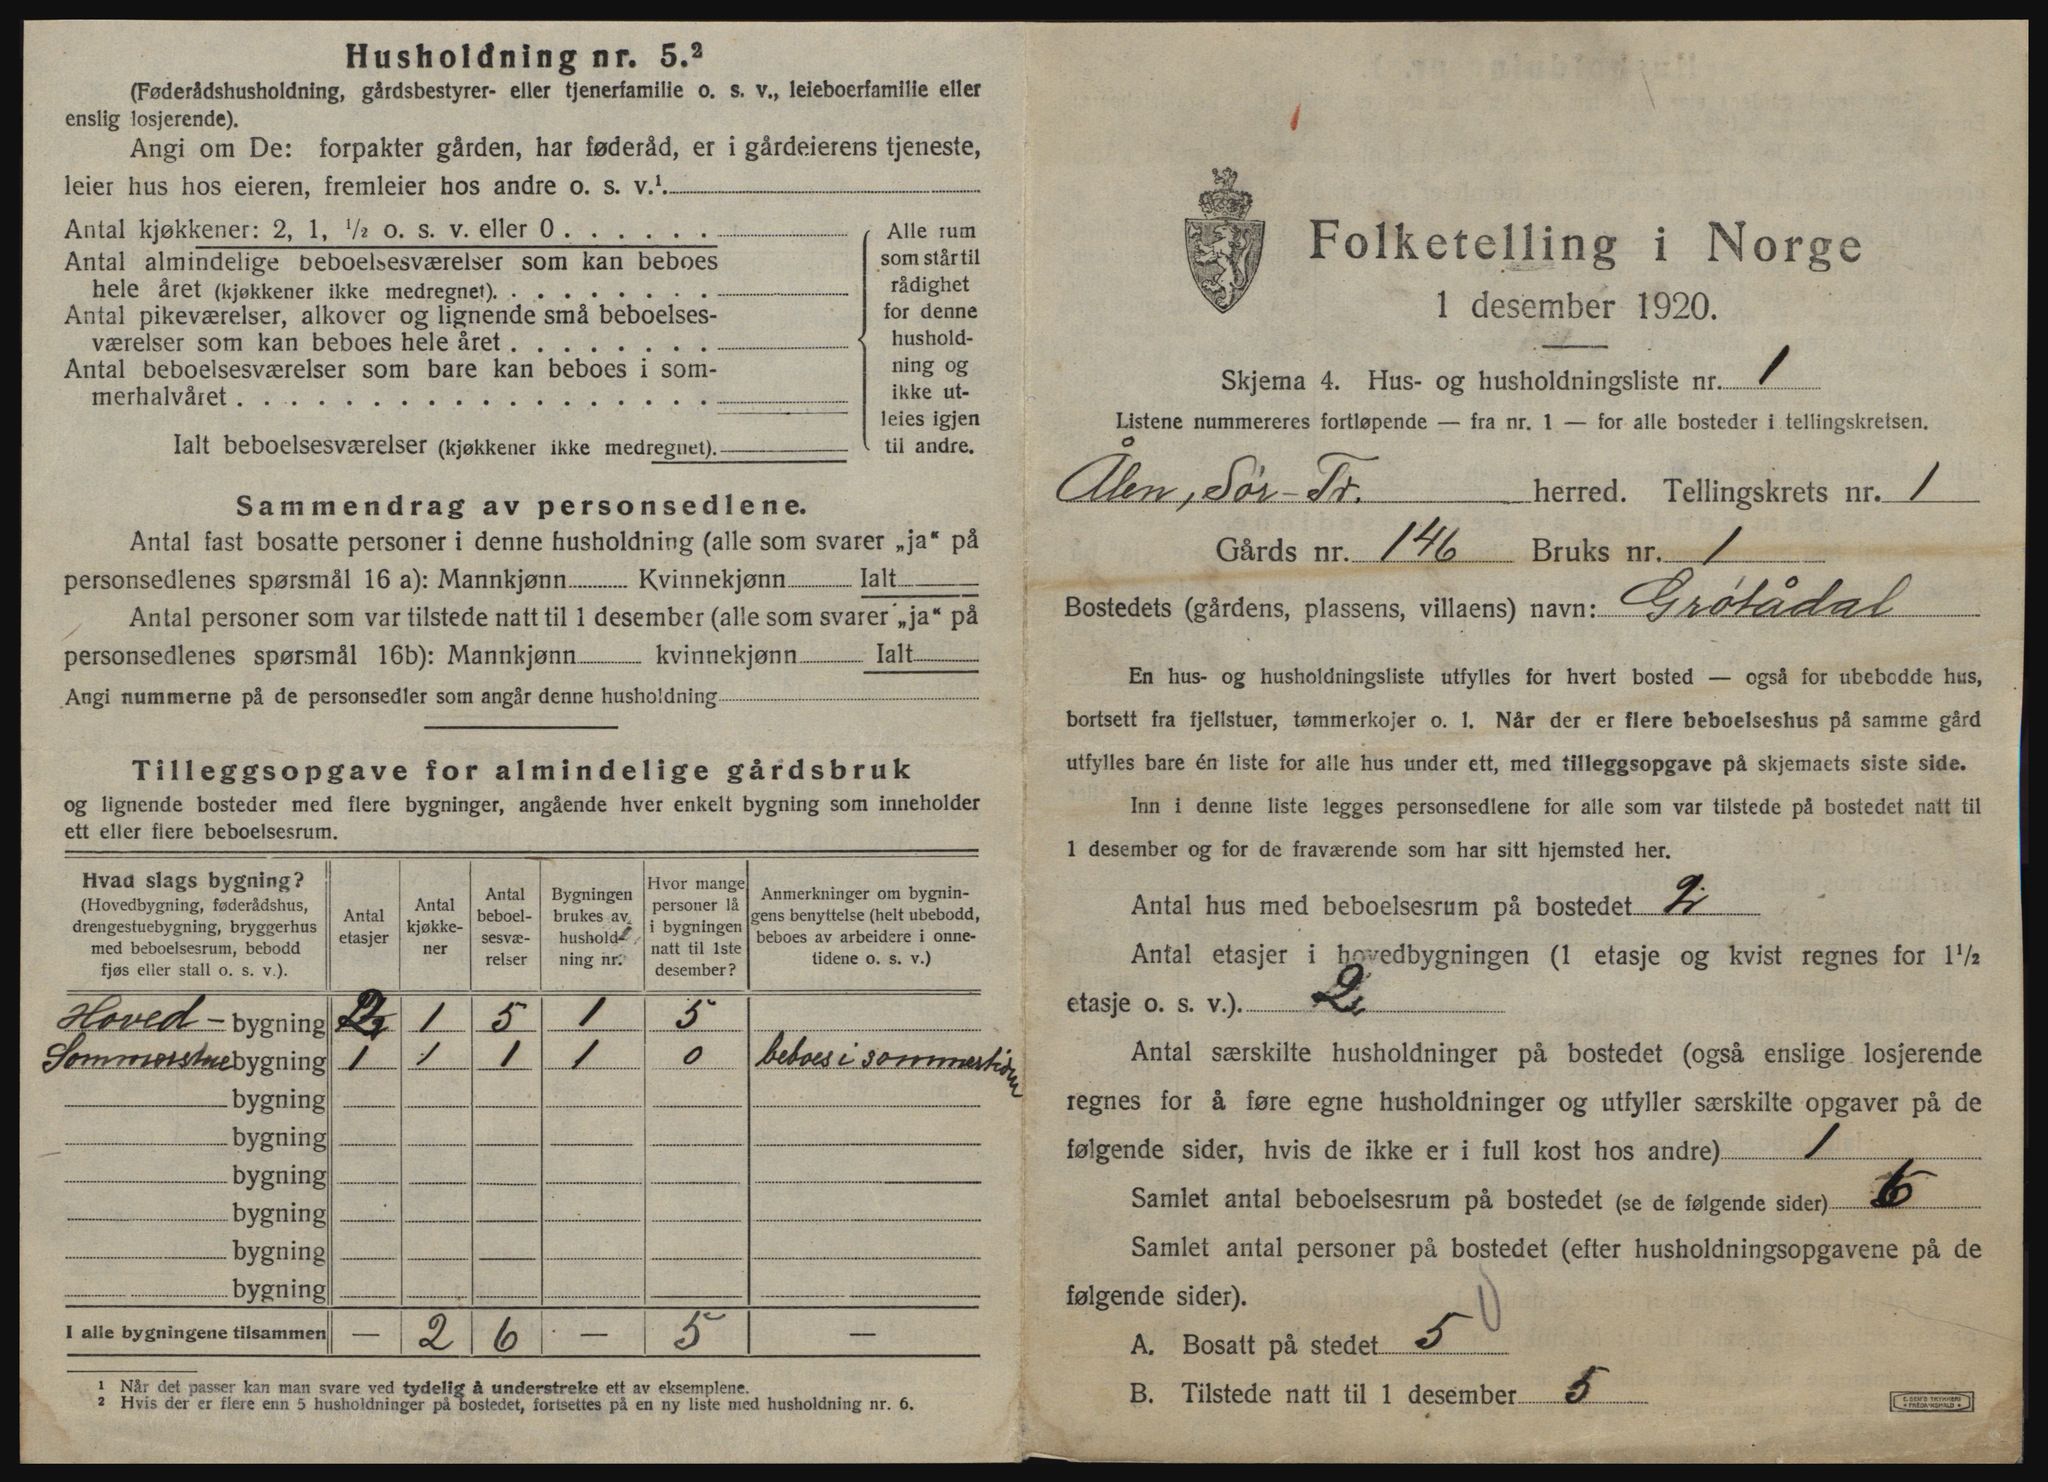 Husholdning nr. 5.²
(Føderådshusholdning, gårdsbestyrer- eller tjenerfamilie o. s. v., leieboerfamilie eller
enslig losjerende).
Angi om De: forpakter gården, har føderåd, er i gårdeierens tjeneste,
leier hus hos eieren, fremleier hos andre o. s. v.¹
Antal kjøkkener: 2, 1, ½ o. s. v. eller 0
Antal almindelige beboelsesværelser som kan beboes
hele året (kjøkkener ikke medregnet).
Antal pikeværelser, alkover og lignende små beboelses-
værelser som kan beboes hele året
Antal beboelsesværelser som bare kan beboes i som-
merhalvåret
Ialt beboelsesværelser (kjøkkener ikke medregnet).
Alle rum
som står til
rådighet
for denne
hushold-
ning og
ikke ut-
leies igjen
til andre.
Sammendrag av personsedlene.
Antal fast bosatte personer i denne husholdning (alle som svarer „ja“ på
personsedlenes spørsmål 16 a): Mannkjønn Kvinnekjønn Ialt
Antal personer som var tilstede natt til 1 desember (alle som svarer „ja“ på
personsedlenes spørsmål 16b): Mannkjønn kvinnekjønn Ialt
Angi nummerne på de personsedler som angår denne husholdning
Tilleggsopgave for almindelige gårdsbruk
og lignende bosteder med flere bygninger, angående hver enkelt bygning som inneholder
ett eller flere beboelsesrum.
Hvad slags bygning?
(Hovedbygning, føderådshus,
drengestuebygning, bryggerhus
med beboelsesrum, bebodd
fjøs eller stall o. s. v.).
Antal
etasjer
Antal
kjøkke-
ner
Antal
beboel-
sesvæ-
relser
Bygningen
brukes av
hushold-
ning nr.
Hvor mange
personer lå
i bygningen
natt til 1ste
desember?
Anmerkninger om bygnin-
gens benyttelse (helt ubebodd,
beboes av arbeidere i onne-
tidene o. s. v.)
Hoved- bygning 2 1 5 1 5
Sommerstue bygning 1 1 1 1 0 beboes i sommertiden
bygning
bygning
bygning
bygning
bygning
bygning
I alle bygningene tilsammen — 2 6 — 5 —
¹ Når det passer kan man svare ved tydelig å understreke ett av eksemplene.
² Hvis der er flere enn 5 husholdninger på bostedet, fortsettes på en ny liste med husholdning nr. 6.
1
Folketelling i Norge
1 desember 1920.
Skjema 4. Hus- og husholdningsliste nr. 1
Listene nummereres fortløpende — fra nr. 1 — for alle bosteder i tellingskretsen.
Ålen, Sør-Tr. herred. Tellingskrets nr. 1
Gårds nr. 146 Bruks nr. 1
Bostedets (gårdens, plassens, villaens) navn: Grøtådal
En hus- og husholdningsliste utfylles for hvert bosted — også for ubebodde hus,
bortsett fra fjellstuer, tømmerkojer o. l. Når der er flere beboelseshus på samme gård
utfylles bare én liste for alle hus under ett, med tilleggsopgave på skjemaets siste side.
Inn i denne liste legges personsedlene for alle som var tilstede på bostedet natt til
1 desember og for de fraværende som har sitt hjemsted her.
Antal hus med beboelsesrum på bostedet 2
Antal etasjer i hovedbygningen (1 etasje og kvist regnes for 1½
etasje o. s. v.). 2
Antal særskilte husholdninger på bostedet (også enslige losjerende
regnes for å føre egne husholdninger og utfyller særskilte opgaver på de
følgende sider, hvis de ikke er i full kost hos andre) 1
Samlet antal beboelsesrum på bostedet (se de følgende sider) 6
Samlet antal personer på bostedet (efter husholdningsopgavene på de
følgende sider).
A. Bosatt på stedet 5
B. Tilstede natt til 1 desember 5